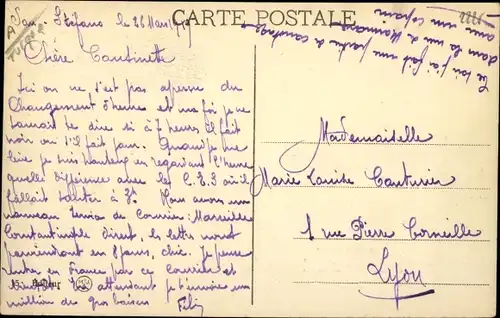 CARTE POSTALE
San-Stéfano le 26 Mars 19
Chère Cantinette
Ici on ne s'est pas aperçu du
Changement d'heure et ma foi je ne
saurait te dire si à 7 heures il fait
noir ou s'il fait jour. Quand je me
lève je suis en regardant l'heure
quelle différence avec les C.E.S où il
fallait sauter à 3h Nous avons un
nouveau service de Courrier Marseille
Constantinople direct, les lettres nous
parviendront en 8 jours, chic. Je pense
rentrer en France par ce Courrier et
bientôt. En attendant je t'envoie un
million de gros baisers
Ce soir j'ai fait une partie de
dans la mer de Marmara
avec un copain
Mademoiselle
Marie Louise Couturier
1 rue Pierre Corneille
Lyon